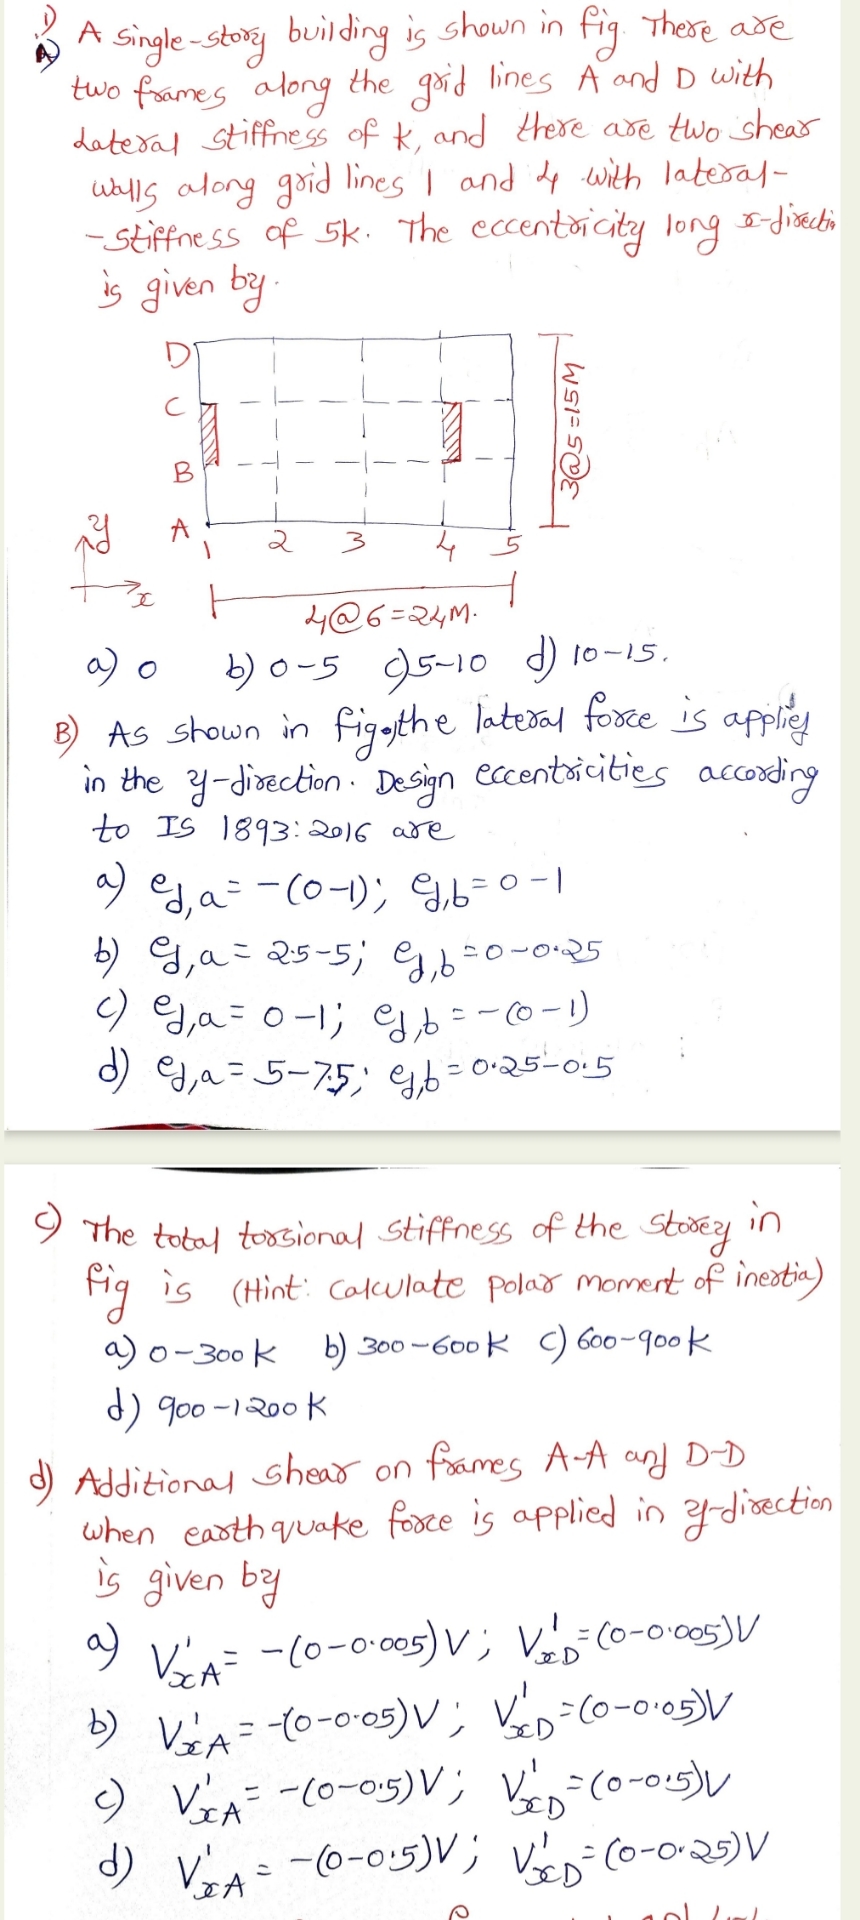 1)
A) A single-story building is shown in fig. There are
two frames along the grid lines A and D with
Lateral stiffness of k, and there are two shear
walls along grid lines 1 and 4 with lateral-
-stiffness of 5k. The eccentricity long x-directio
is given by.
D
C
B
A
y
x
1 2 3 4 5
3@5=15M
4@6=24M.
a) 0 b) 0-5 c) 5-10 d) 10-15.
B) As shown in fig, the lateral force is applies
in the y-direction. Design eccentricities according
to IS 1893:2016 are
a) ed,a = -(0-1); ed,b = 0-1
b) ed,a = 2.5-5; ed,b = 0-0.25
c) ed,a = 0-1; ed,b = -(0-1)
d) ed,a = 5-7.5; ed,b = 0.25-0.5
c) The total torsional stiffness of the storey in
fig is (Hint: Calculate polar moment of inertia)
a) 0-300k b) 300-600k c) 600-900k
d) 900-1200k
d) Additional shear on frames A-A and D-D
when earthquake force is applied in y-direction
is given by
a) V'xA = -(0-0.005)V; V'xD = (0-0.005)V
b) V'xA = -(0-0.05)V; V'xD = (0-0.05)V
c) V'xA = -(0-0.5)V; V'xD = (0-0.5)V
d) V'xA = -(0-0.5)V; V'xD = (0-0.25)V